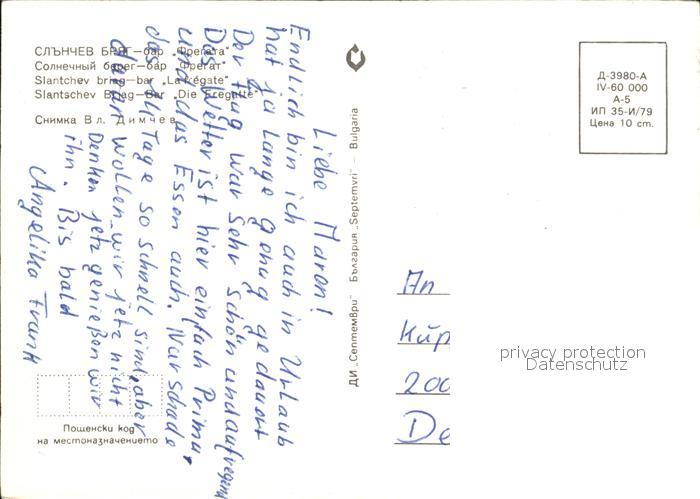 СЛЪНЧЕВ БРЯГ—бар „Фрегата"
Солнечный берег—бар „Фрегат"
Slantchev briag—bar „La Frégate"
Slantschev Briag—Bar „Die Fregatte"
Снимка Вл. Димчев
Liebe Maron!
Endlich bin ich auch in Urlaub
hat ja lange genug gedauert
Der Flug war sehr schön und aufregend
Das Wetter ist hier einfach Prima,
und das Essen auch. Nur schade
das die Tage so schnell sind, aber
daran wollen wir jetz nicht
Denken jetz genießen wir
ihn. Bis bald
Angelika Frank
Пощенски код
на местоназначението
ДИ „Септември" — България „Septemvri" — Bulgaria
Д-3980-А
IV-60 000
А-5
ИП 35-И/79
Цена 10 cm.
An
Küp
200
De
privacy protection
Datenschutz